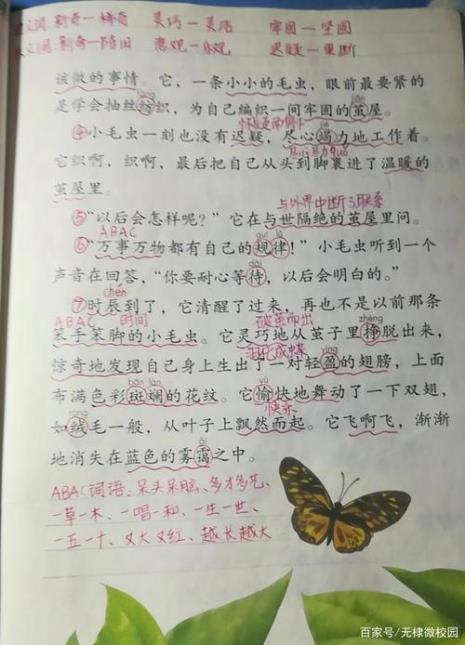 近义词：新奇—神奇 灵巧—灵活 牢固—坚固
反义词：新奇—陈旧 悲观—乐观 迟疑—果断
该做的事情。它，一条小小的毛虫，眼前最要紧的
是学会抽丝纺织，为自己编织一间牢固的茧屋。
④小毛虫一刻也没有迟疑，尽心竭力地工作着。
它织啊，织啊，最后把自己从头到脚裹进了温暖的
茧屋里。
与外界中断了联系
⑤“以后会怎样呢？”它在与世隔绝的茧屋里问。
ABAC guī lǜ
⑥“万事万物都有自己的规律！”小毛虫听到一个
dài
声音在回答，“你要耐心等待，以后会明白的。”
chén
⑦时辰到了，它清醒了过来，再也不是以前那条
ABAC 时间 破茧而出 zhèng
笨手笨脚的小毛虫。它灵巧地从茧子里挣脱出来，
羽化成蝶
惊奇地发现自己身上生出了一对轻盈的翅膀，上面
bān lán yú
布满色彩斑斓的花纹。它愉快地舞动了一下双翅，
róng 快乐
如绒毛一般，从叶子上飘然而起。它飞啊飞，渐渐
ǎi
地消失在蓝色的雾霭之中。
ABAC词语：呆头呆脑、多才多艺、
一草一木、一唱一和、一生一世、
一五一十、又大又红、越长越大
百家号/无棣微校园